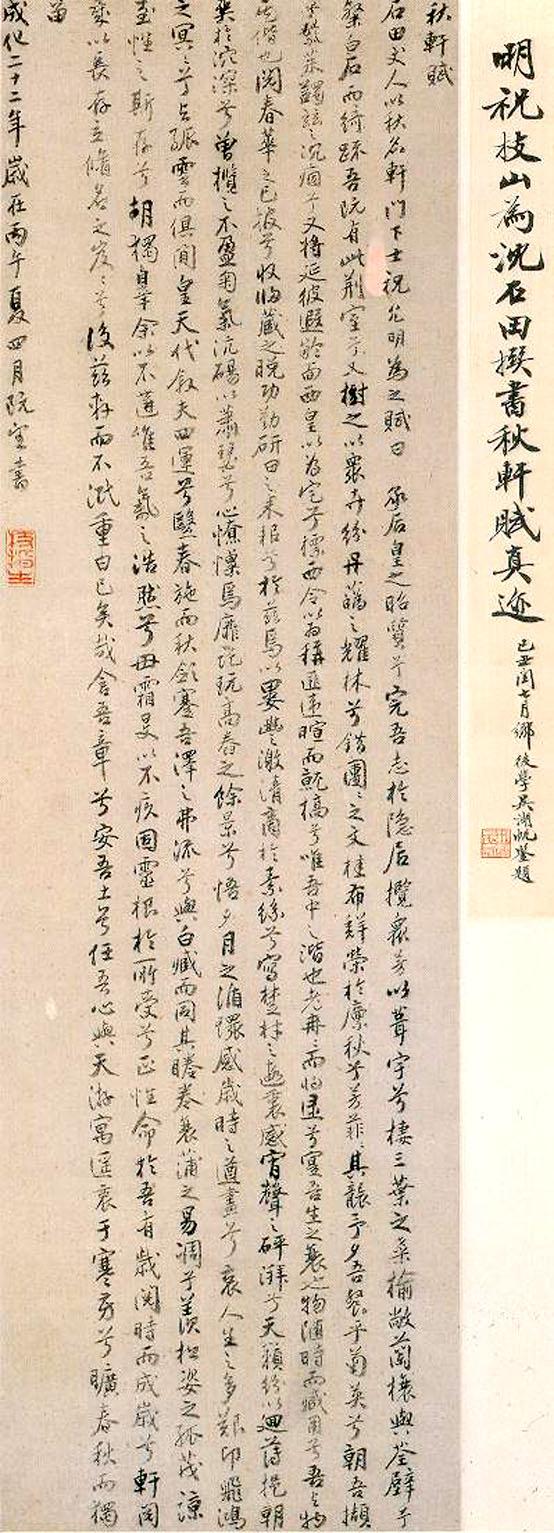 明祝枝山為沈石田撰書秋軒賦真迹
己丑閏七月鄉後學吳湖帆鑒題
秋軒賦
石田丈人以秋名軒門下士祝允明為之賦曰 承后皇之昭質兮完吾志於隱居攬眾芳以葺宇兮棲三葉之桑榆敞蘭櫰與荃壁兮
白石而綺疏吾既有此荊室兮又樹之以眾卉紛丹蘤之耀林兮錯團團之文桂布鮮榮於廩秋兮芳菲菲其襲予夕吾餐乎菊英兮朝吾擷
之沈痼兮又將延彼遐齡西皇以為宅兮標西令以為稱匪違暄而就槁兮唯吾中之諧也老冉冉而將逮兮蹇吾生之衰也物隨時而臧用兮吾與物
諧也閱春華之已披兮收歸藏之晚功勤研日之未報兮於茲焉以婁豐激清商於素絲兮寫楚林之遺哀感宵聲之砰湃兮天籟紛以迴薄挹朝
爽於沈深兮曾攬之不盈匊氣沆碭以蕭瑟兮心憭慄焉靡玩高舂之餘景兮悟夕月之循環感歲時之遒盡兮哀人生之多艱仰飛鴻
之冥冥兮與孤雲而俱閒皇天代敘夫四運兮繄春施而秋斂蹇吾澤之弗流兮與白藏而同其睠眷衰蒲之易凋兮羨松姿之孤茂諒
至性之斯存兮胡獨皋余以不
雖吾氣之浩然兮毋霜旻以不疚固靈根於所受兮正性命於吾有歲閱時而成歲兮軒閱
歲以長存立脩名之岌岌兮後茲軒而不泯重曰已矣哉含吾章兮安吾土兮任吾心與天游寓遙衷于寒房兮曠春秋而獨
留
成化二十二年歲在丙午夏四月既望書